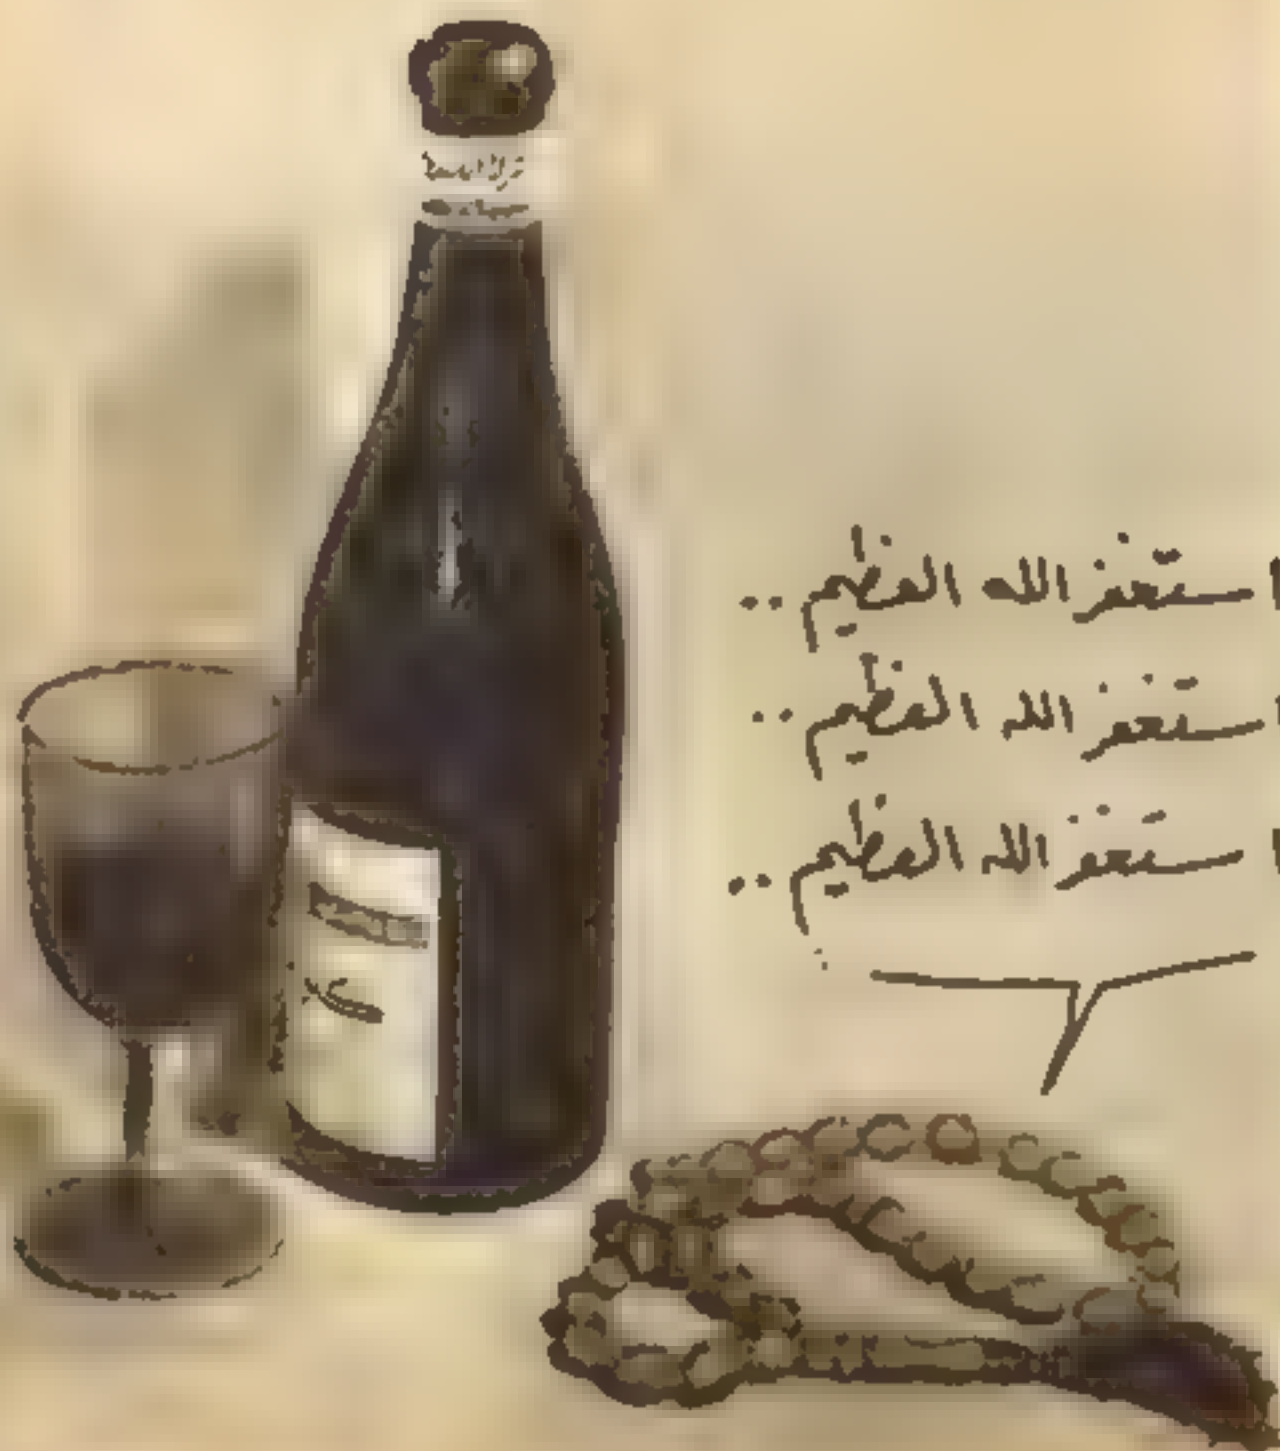 استغفر الله العظيم..
استغفر الله العظيم..
استغفر الله العظيم..